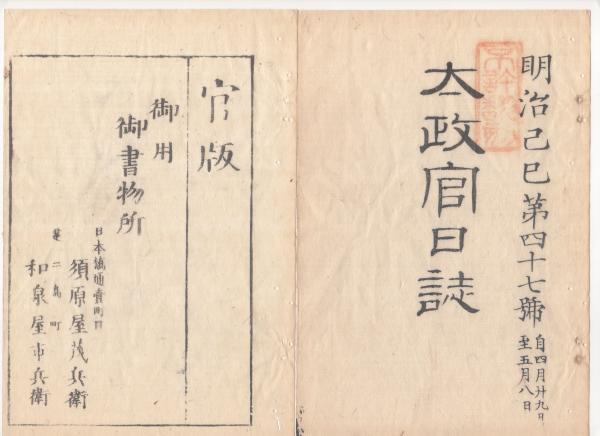 明治己巳第四十七號
自四月廿九日
至五月八日
太政官日誌
官版
御用
御書物所
日本橋通壹町目
須原屋茂兵衛
芝三島町
和泉屋市兵衛